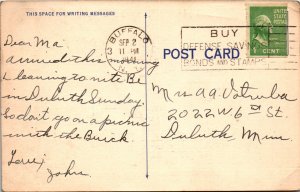 THIS SPACE FOR WRITING MESSAGES
Dear Ma
arrived this morning
Cleaning to nite Be
in Duluth Sunday.
So don't go on a picnic
with the Buick.
Love,
John.
BUFFALO
SEP 2
11 PM
N.Y.
BUY
DEFENSE SAVINGS
BONDS AND STAMPS
POST CARD
1 CENT
Mrs A.A.
2022 W 6th St.
Duluth Minn